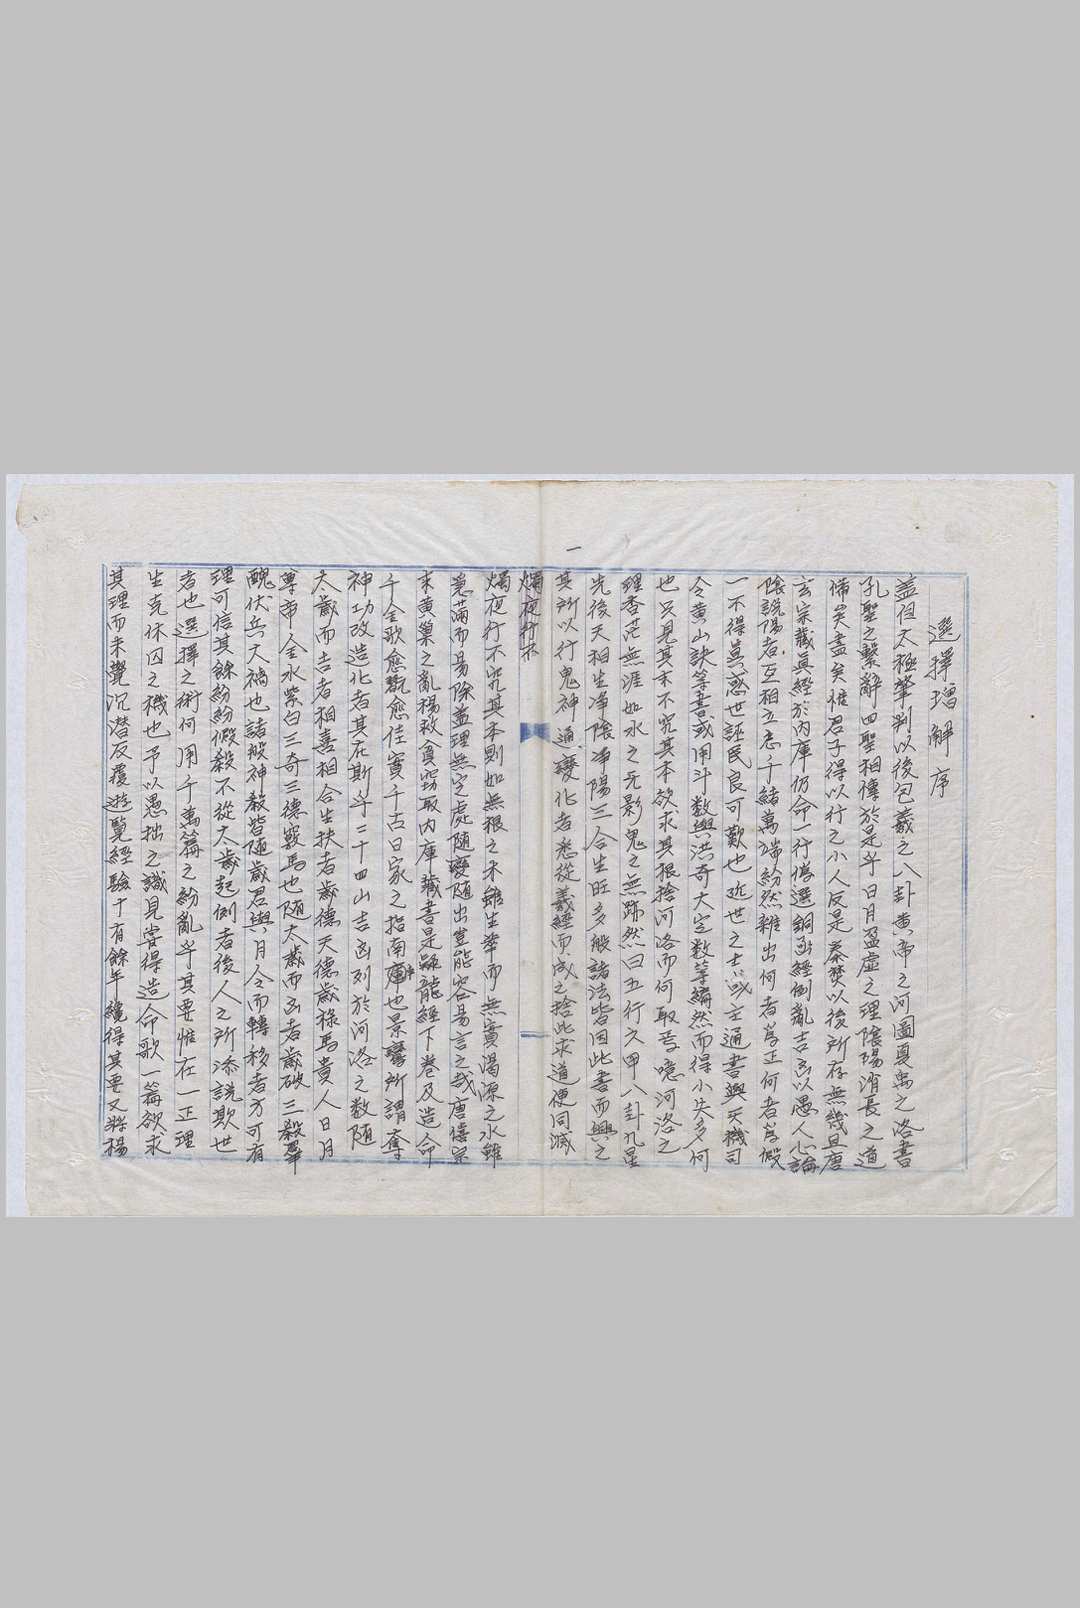 一
選擇增解序
蓋自太極肇判以後包羲之八卦黃帝之河圖夏禹之洛書
孔聖之繫辭四聖相傳於是乎日月盈虛之理陰陽消長之道
備矣盡矣惟君子得以行之小人反是秦焚以後所存無幾且唐
玄宗藏眞經於內庫仍命一行僞選銅函經倒亂吉凶以愚人心論
陰說陽者互相立志千緖萬端紛然雜出何者爲正何者爲假
一不得眞惑世誣民良可歎也近世之士或主通書與天機司
令黃山訣等書或用斗數與洪奇大定數等編然而得小失多何
也只見其末不究其本欲求其根捨河洛而何取焉噫河洛之
理杳茫無涯如水之无影鬼之無跡然曰五行六甲八卦九星
先後天相生淨陰淨陽三合生旺多般諸法皆因此書而興之
其所以行鬼神通變化者悉從羲經而成之捨此求道便同滅
燭夜行不
燭夜行不究其本則如無根之木雖生華而無實渴源之水雖
㴠滿而易除蓋理無定處隨變隨出豈能容易言之哉唐僖宗
末黃巢之亂楊救貧竊取內庫藏書是疑龍經下卷及造命
千金歌愈翫愈佳實千古日家之指南車也景鸞所謂奪
神功改造化者其在斯乎二十四山吉凶列於河洛之數随
大歲而吉者相喜相合生扶者歲德天德歲祿馬貴人日月
尊帝金水紫白三奇三德竅馬也随大歲而凶者歲破三殺羣
醜伏兵大禍也諸般神殺皆隨歲君與月令而轉移者方可有
理可信其餘紛紛假殺不從大歲起例者後人之所添說欺世
者也選擇之術何用千萬篇之紛亂乎其要惟在一正理
生克休囚之機也予以愚拙之識見嘗得造命歌一篇欲求
其理而未覺沉潛反覆遊覽經驗十有餘年纔得其要又將楊